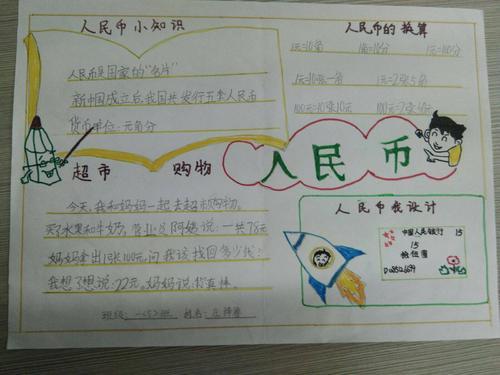 人民币小知识
人民币是国家的“名片”
新中国成立后，我国共发行五套人民币
货币单位：元角分
人民币的换算
1元=10角 1角=10分 1元=100分
1元=10张一角 1元=2张5角
100元=10张10元 100元=2张50元
人民币
超市购物
今天，我和妈妈一起去超市购物。
买了水果和牛奶，营业员阿姨说：一共78元
妈妈拿出1张100元，问我该找回多少钱？
我想了想说：22元。妈妈说：你真棒。
班级： 姓名：
人民币我设计
中国人民银行 15
15
拾伍圆